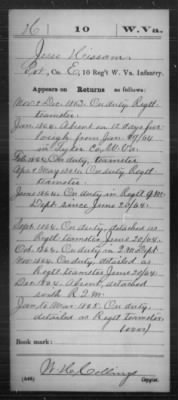 H 10 W.Va.
Jesse Hissam
Pvt., Co. E, 10 Reg't W. Va. Infantry.
Appears on Returns as follows:
Nov & Dec. 1863. On duty Regtl
teamster.
Jan. 1864. Absent on 15 days fur
lough from Jan. 29/64
in Tyler Co. W.Va.
Feb. 1864. On duty, teamster
Apr & May 1864 On duty Regtl
teamster.
June 1864. On duty in Regtl Q.M.
Dept. since June 20/64.
Sept. 1864. On duty, detached as
Regtl teamster June 20/64.
Oct. 1864. On duty in Q.M. Dept
Nov. 1864. On duty, detailed as
Regtl teamster June 20/64.
Dec. 1864. Absent, detached
with R.Q.M.
Jan. to Mar. 1865. On duty,
detailed as Regtl teamster.
(over)
Book mark:
W. H. Collings
(546) Copyist.